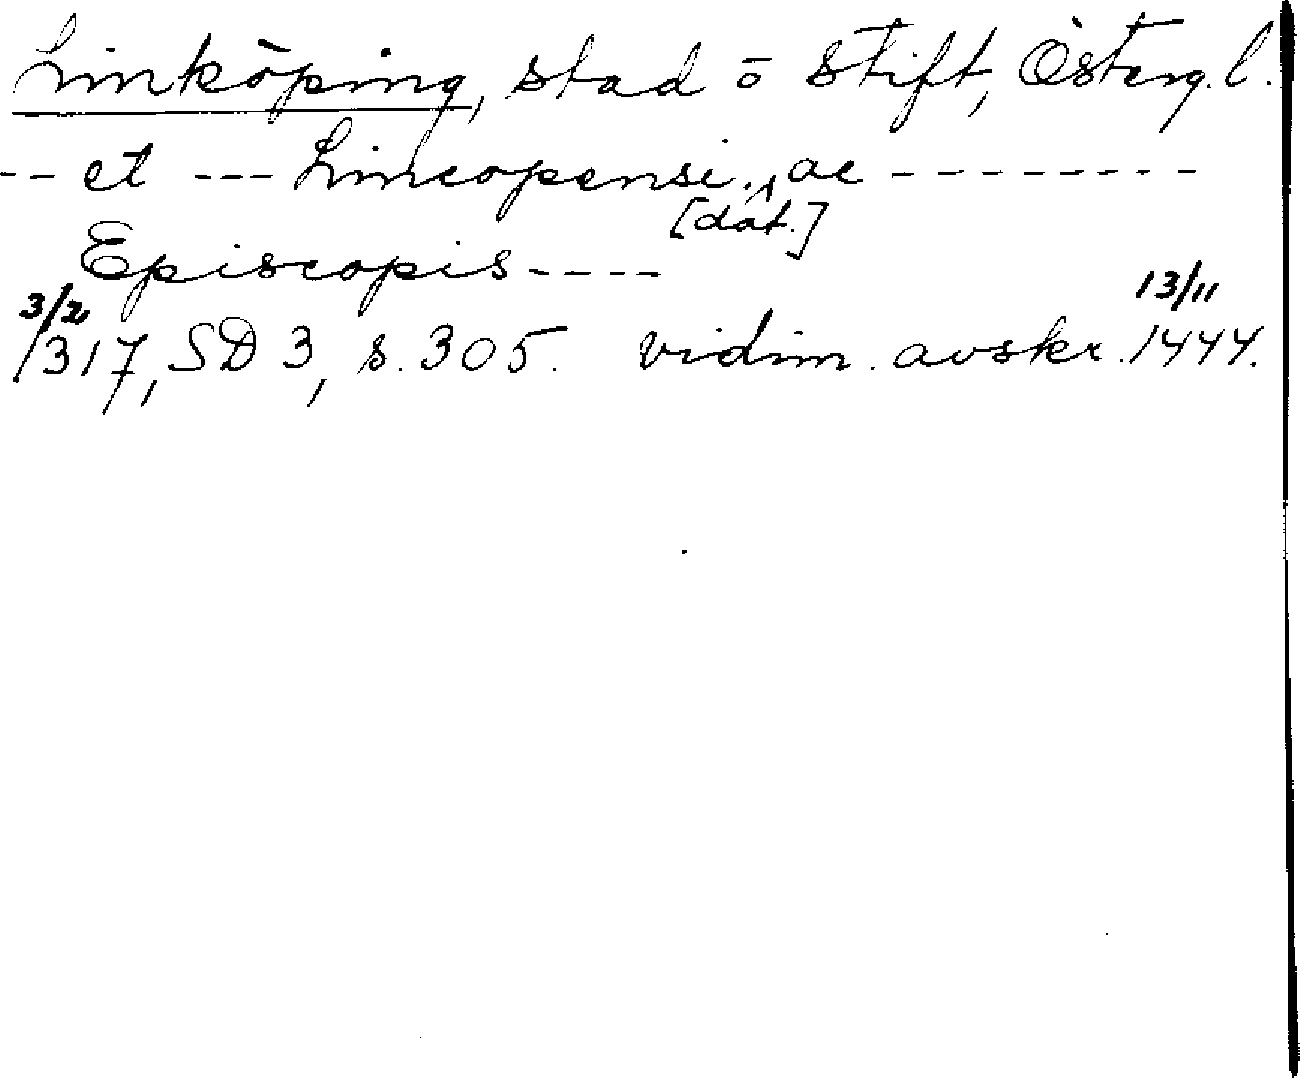 Linköping, stad o stift, Österg. l.
-- et --- Lincopensi. ac --------
[dat.]
Episcopis ----
3/2 13/11
1317, SD 3, s. 305. vidim. avskr. 1444.